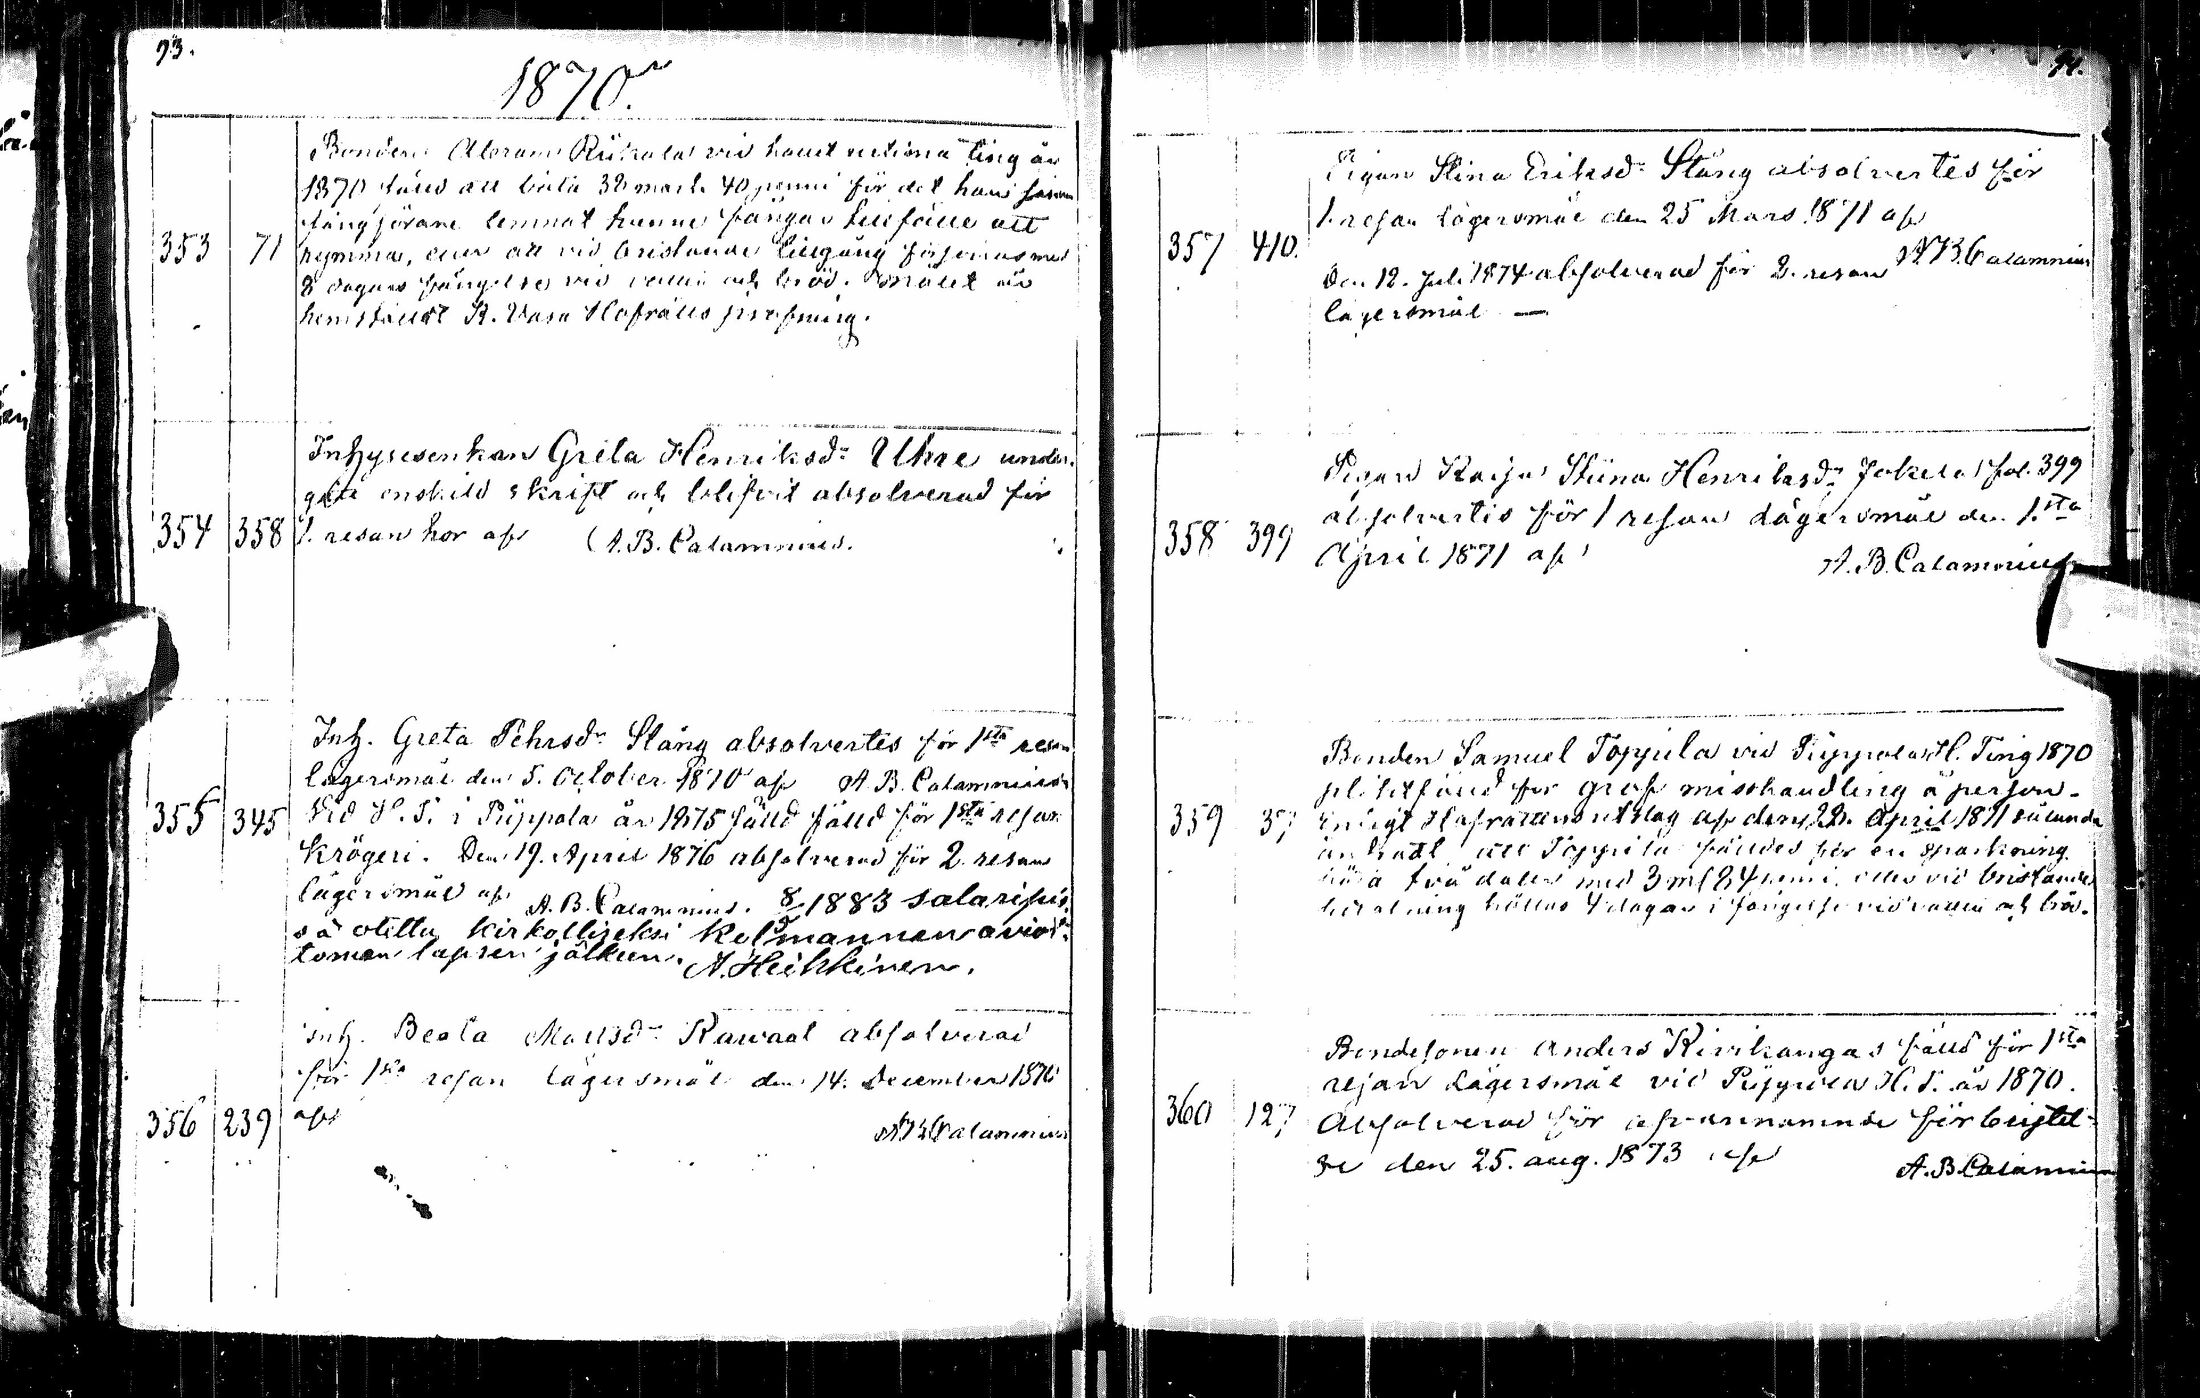 93.
1870.
Bonden Abram Riihola vid hållet urtima ting år
1870 fälld att böta 38 mark 40 penni för det han såsom
fångförare lemnat henne fångar tillfälle att
rymma, eller att vid bristande tillgång försonas med
8 dagars fängelse vid vatten och bröd. Målet är
hemstäldt K. Vasa Hofrätts pröfning.
353 71
Inhysesenkan Greta Henriksdr Uhre under-
gått enskild skrift och blifvit absolverad för
354 358 1. resan hor af A. B. Calamnius.
Inh. Greta Pehrsdr Stång absolvertes för 1sta resan
lägersmål den 5. October 1870 af A. B. Calamnius
355 345 Vid H. T. i Piippola år 1875 fälld fälld för 1sta resan
krögeri. Den 19. April 1876 absolverad för 2. resan
lägersmål af A. B. Calamnius. 8/ 1883 salaripis
sä otettu kirkolliseksi kolmannen aviot-
toman lapsen jälkeen. A. Heikkinen.
Inh. Beata Mattsdr Rawaal absolverad
för 1sta resan lägersmål den 14. December 1870
356 239 af
A B Calamnius
94.
Pigan Stina Eriksdr Stång absolvertes för
1. resan lägersmål den 25 Mars 1871 af
357 410. A B Calamnius
Den 12. Juli 1874 absolverad för 2. resan
lägersmål —
Pigan Kaisa Stina Henriksdr Jokela fol. 399
absolvertes för 1 resan lägersmål den 1.sta
358 399 April 1871 af A. B. Calamnius
Bonden Samuel Toppila vid Piippola H. Ting 1870
pliktfälld för grof misshandling å person.
359 37 Enligt Hofrättens utslag af den 22. April 1871 sålunda
ändradt att Toppila fälldes för en sparkning
böta två daler med 3 mk 84 penni, eller vid bristande
betalning hållas 4 dagar i fängelse vid vatten och bröd.
Bondesonen Anders Kivikangas fälld för 1sta
resan lägersmål vid Piippola H. T. år 1870.
360 127 Absolverad för ofvannämnde förbrytel-
se den 25. aug. 1873 af A. B. Calamnius